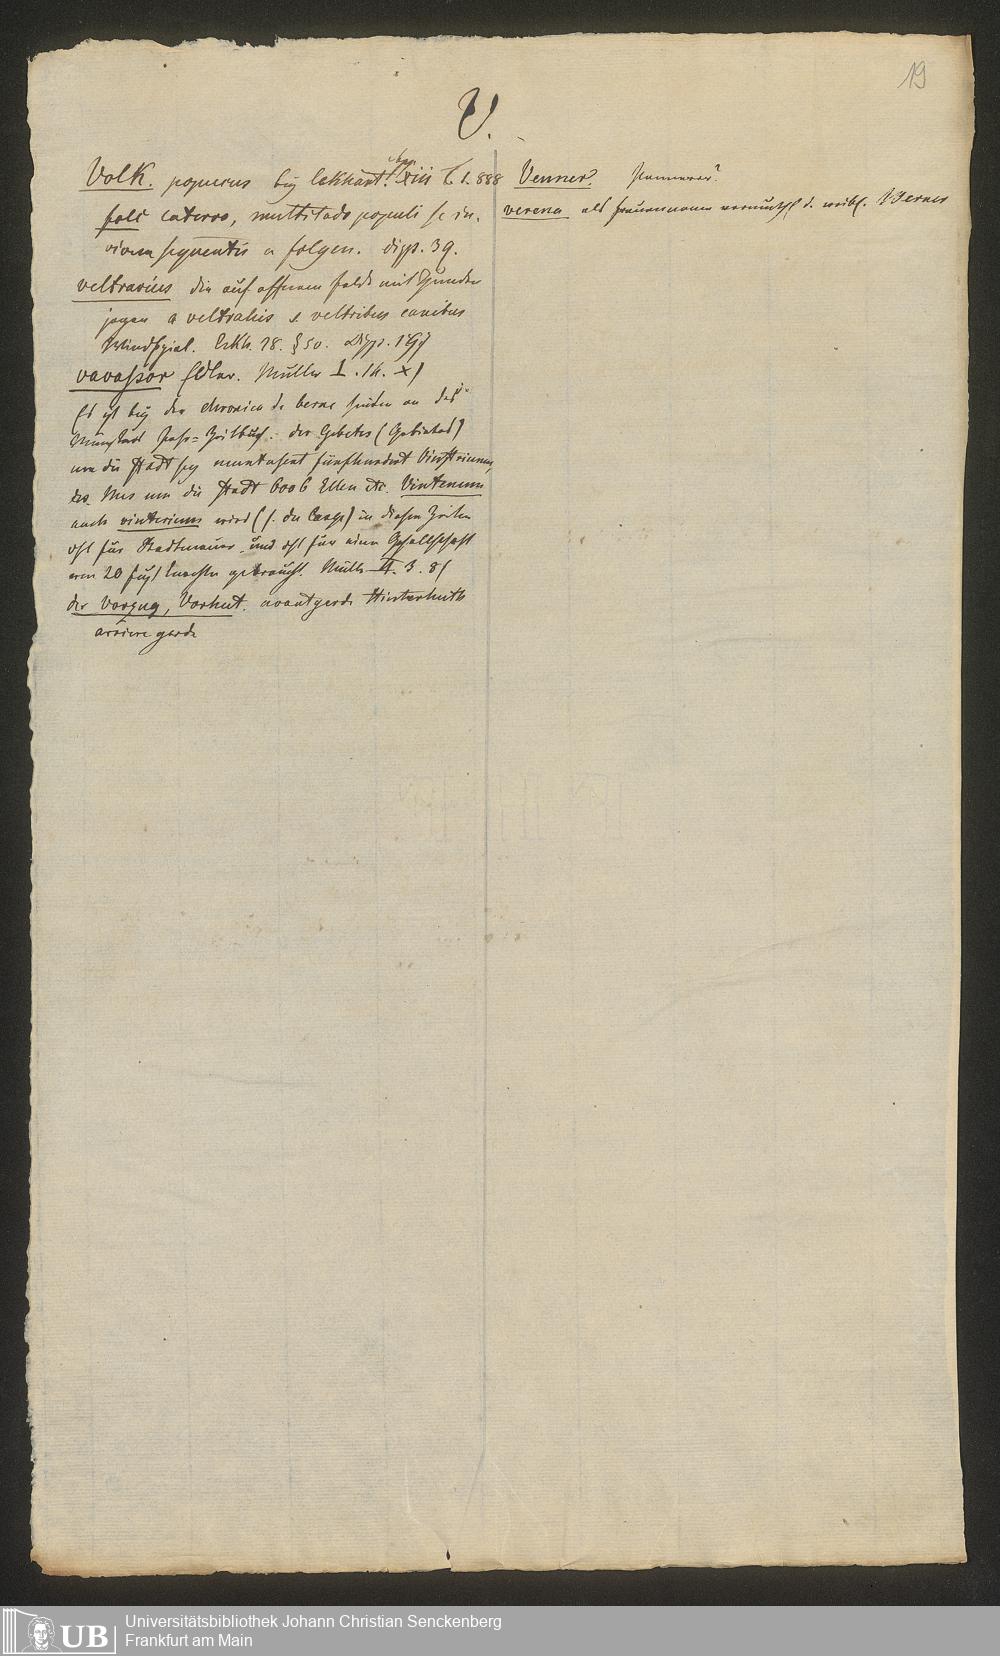 19
V.
Volk. populus bey Eckhart. XIII 888
folc caterva, multitudo populi se in-
vicem sequentis a folgen. diss. 39.
veltrarius die auf offenem Felde mit Hunden
jagen a veltrahis s. veltribus canibus
Windspiel. Eckh. 18. §50.
vavassor Edler. Müller I. 16.
Es ist bey der chronica de berne hinten an das
Münsters Zeitbuch: der Gebetes (Gebietes)
um die Stadt sey fünfhundert
um die Stadt 6006 Ellen etc. Vintenum
auch vintenum wird (s. du Cange) in diesen Zeiten
oft für Stadtmauer, und oft für eine Gesellschaft
von 20 gebraucht. Müller II. 3. 8
der Vorzug, Vorhut. avantgarde Hinterhuth
arriere garde
Venner. Pannerer?
verena als frauennamen d. weibl. Werner
UB
Universitätsbibliothek Johann Christian Senckenberg
Frankfurt am Main